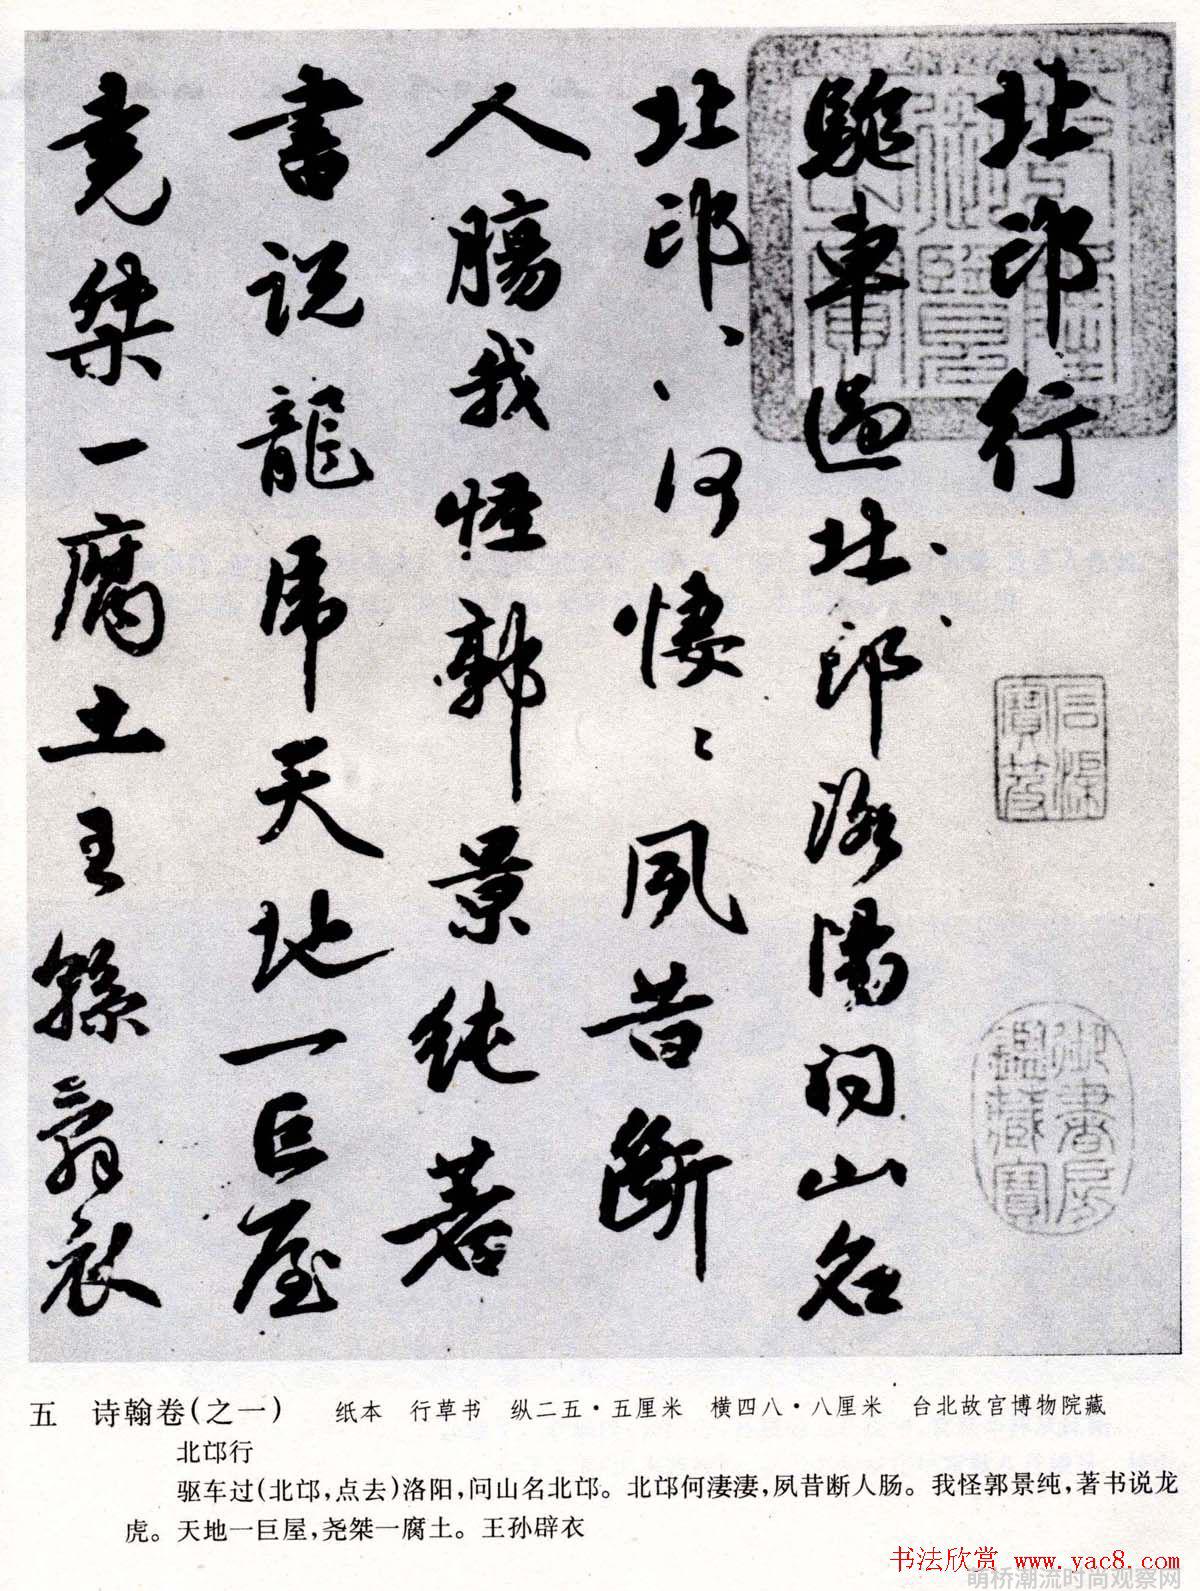 北邙行
驅車過北邙洛陽問山名
北邙、、何悽、、夙昔斷
人腸我怪郭景純著
書説龍虎天地一巨屋
堯桀一腐土王孫辟衣
御書房鑑藏寶
五 诗翰卷(之一) 纸本 行草书 纵二五·五厘米 横四八·八厘米 台北故宫博物院藏
北邙行
驱车过(北邙,点去)洛阳,问山名北邙。北邙何淒淒,夙昔断人肠。我怪郭景纯,著书说龙
虎。天地一巨屋,尧桀一腐土。王孙辟衣
书法欣赏 www.yac8.com
萌桥潮流时尚观察网